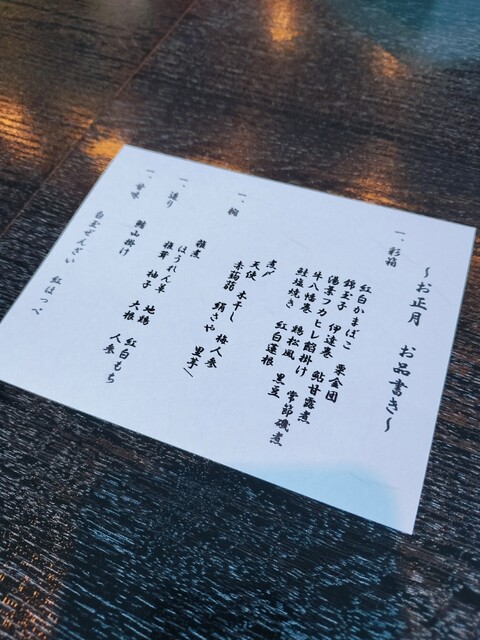 ～お正月 お品書き～
一、彩箱
紅白かまぼこ 栗金団
錦玉子 伊達巻 鮎甘露煮
湯葉フカヒレ餡掛け 常節磯煮
牛八幡巻 鶏松風 黒豆
鮭塩焼き 紅白蓮根
煮〆
天使 本干し 梅人参
赤蒟蒻 絹さや 里芋
一、椀
雑煮
ほうれん草 地鶏 紅白もち
椎茸 柚子 大根 人参
一、造り
鯛山掛け
一、甘味
白玉ぜんざい 紅ほっぺ